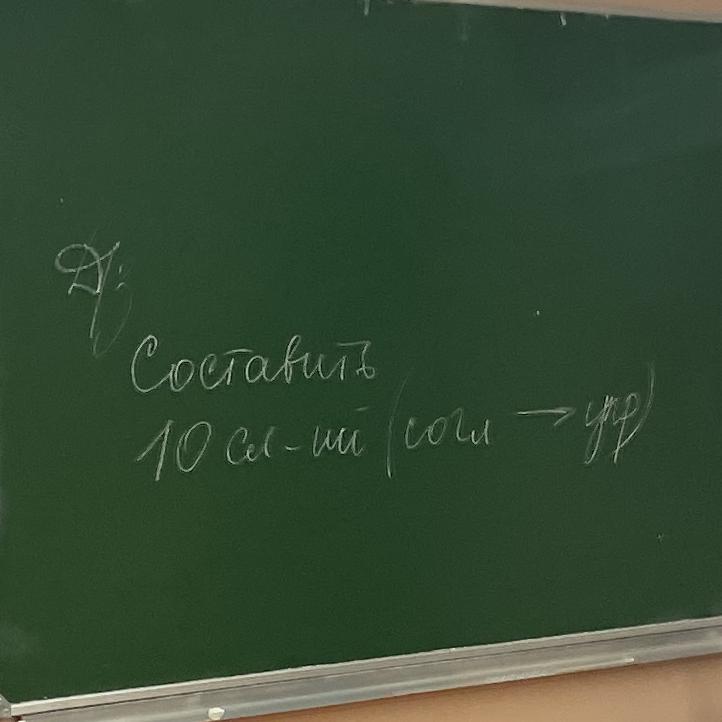 Д/з:
Составить
10 сл-ий (согл → упр)